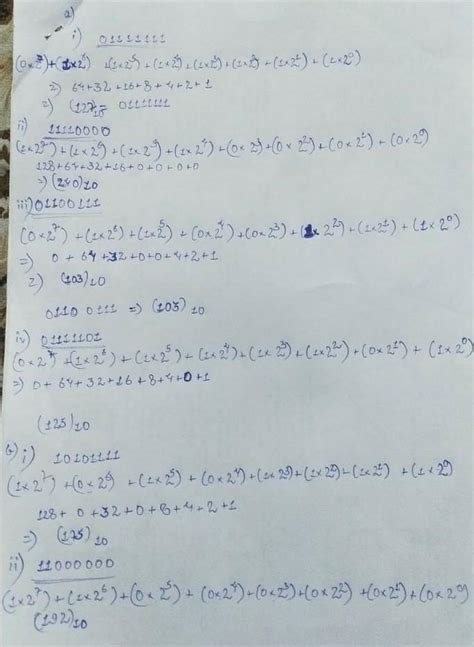 a)
i) 01111111
(0×2⁷)+(1×2⁶)+(1×2⁵)+(1×2⁴)+(1×2³)+(1×2²)+(1×2¹)+(1×2⁰)
⇒ 64+32+16+8+4+2+1
⇒ (127)₁₀ = 0111111
ii) 11110000
(1×2⁷)+(1×2⁶)+(1×2⁵)+(1×2⁴)+(0×2³)+(0×2²)+(0×2¹)+(0×2⁰)
128+64+32+16+0+0+0+0
⇒ (240)₁₀
iii) 01100111
(0×2⁷)+(1×2⁶)+(1×2⁵)+(0×2⁴)+(0×2³)+(1×2²)+(1×2¹)+(1×2⁰)
⇒ 0+64+32+0+0+4+2+1
2) (103)₁₀
0110 0111 ⇒ (103)₁₀
iv) 01111101
(0×2⁷)+(1×2⁶)+(1×2⁵)+(1×2⁴)+(1×2³)+(1×2²)+(0×2¹)+(1×2⁰)
⇒ 0+64+32+16+8+4+0+1
(125)₁₀
i) 10101111
(1×2⁷)+(0×2⁶)+(1×2⁵)+(0×2⁴)+(1×2³)+(1×2²)+(1×2¹)+(1×2⁰)
128+0+32+0+8+4+2+1
⇒ (175)₁₀
ii) 11000000
(1×2⁷)+(1×2⁶)+(0×2⁵)+(0×2⁴)+(0×2³)+(0×2²)+(0×2¹)+(0×2⁰)
(192)₁₀